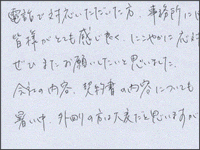 電話で対応いただいた方、事務所に
皆様がとても感じ良く、にこやかに応対
ぜひまたお願いしたいと思いました。
会社の内容、契約書の内容についても
暑い中 外回りの方は大変だと思いますが